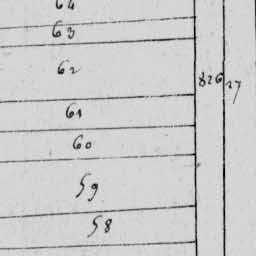 64
63
62
826 27
61
60
59
58